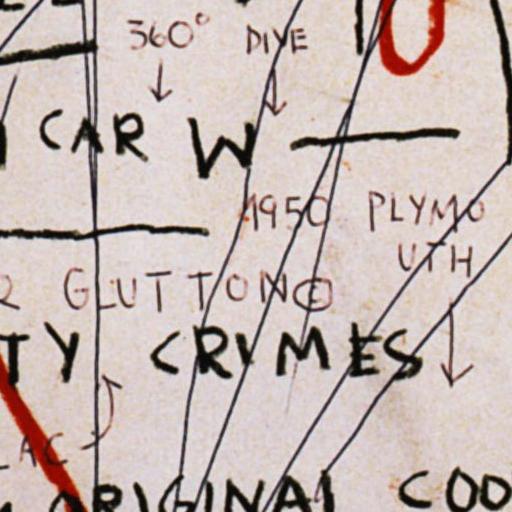 360° DIVE
CAR W
1950 PLYMO
UTH
GLUTTON©
TY CRIMES
LAC
ORIGINAL COO